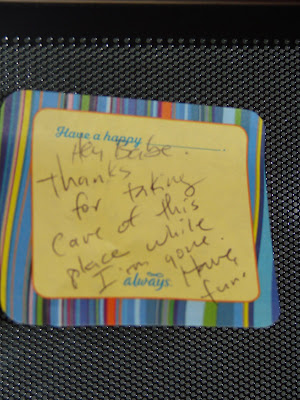 Have a happy
Hey Babe.
Thanks
for taking
care of this
place while
I'm gone.
Have
fun.
always.